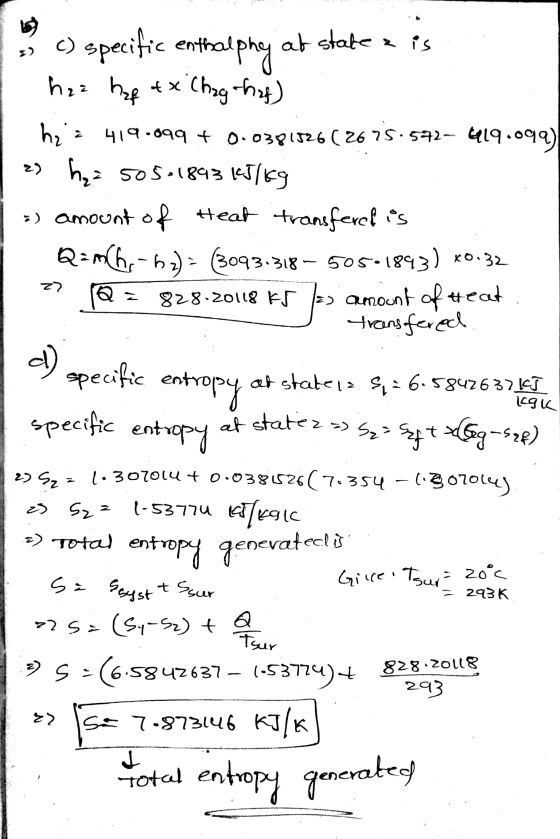 b)
=) c) specific enthalphy at state 2 is
h2 = h2f + x (h2g - h2f)
h2 = 419.099 + 0.0381526 (2675.572 - 419.099)
=) h2 = 505.1893 kJ/kg
=) amount of Heat transfered is
Q = m(h1 - h2) = (3093.318 - 505.1893) x0.32
=) Q = 828.20118 kJ => amount of Heat
transfered
d) specific entropy at state 1 = S1 = 6.5842637 kJ/kgK
specific entropy at state 2 => S2 = S2f + x(S2g - S2f)
=) S2 = 1.307014 + 0.0381526 (7.354 - 1.307014)
=) S2 = 1.53774 kJ/kgK
=) Total entropy generated is
S = Ssyst + Ssur Give: Tsur = 20°C
= 293K
=> S = (S1 - S2) + Q/Tsur
=) S = (6.5842637 - 1.53774) + 828.20118/293
=) S = 7.873146 KJ/K
↓
Total entropy generated